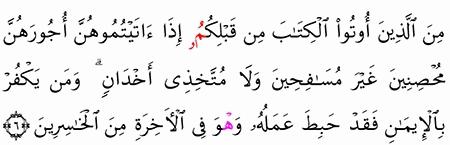 مِنَ ٱلَّذِينَ أُوتُوا۟ ٱلْكِتَـٰبَ مِن قَبْلِكُمُۥ إِذَا ءَاتَيْتُمُوهُنَّ أُجُورَهُنَّ
مُحْصِنِينَ غَيْرَ مُسَـٰفِحِينَ وَلَا مُتَّخِذِى أَخْدَانٍ ۗ وَمَن يَكْفُرْ
بِٱلْإِيمَـٰنِ فَقَدْ حَبِطَ عَمَلُهُۥ وَهْوَ فِى ٱلْـَٔاخِرَةِ مِنَ ٱلْخَـٰسِرِينَ ٦